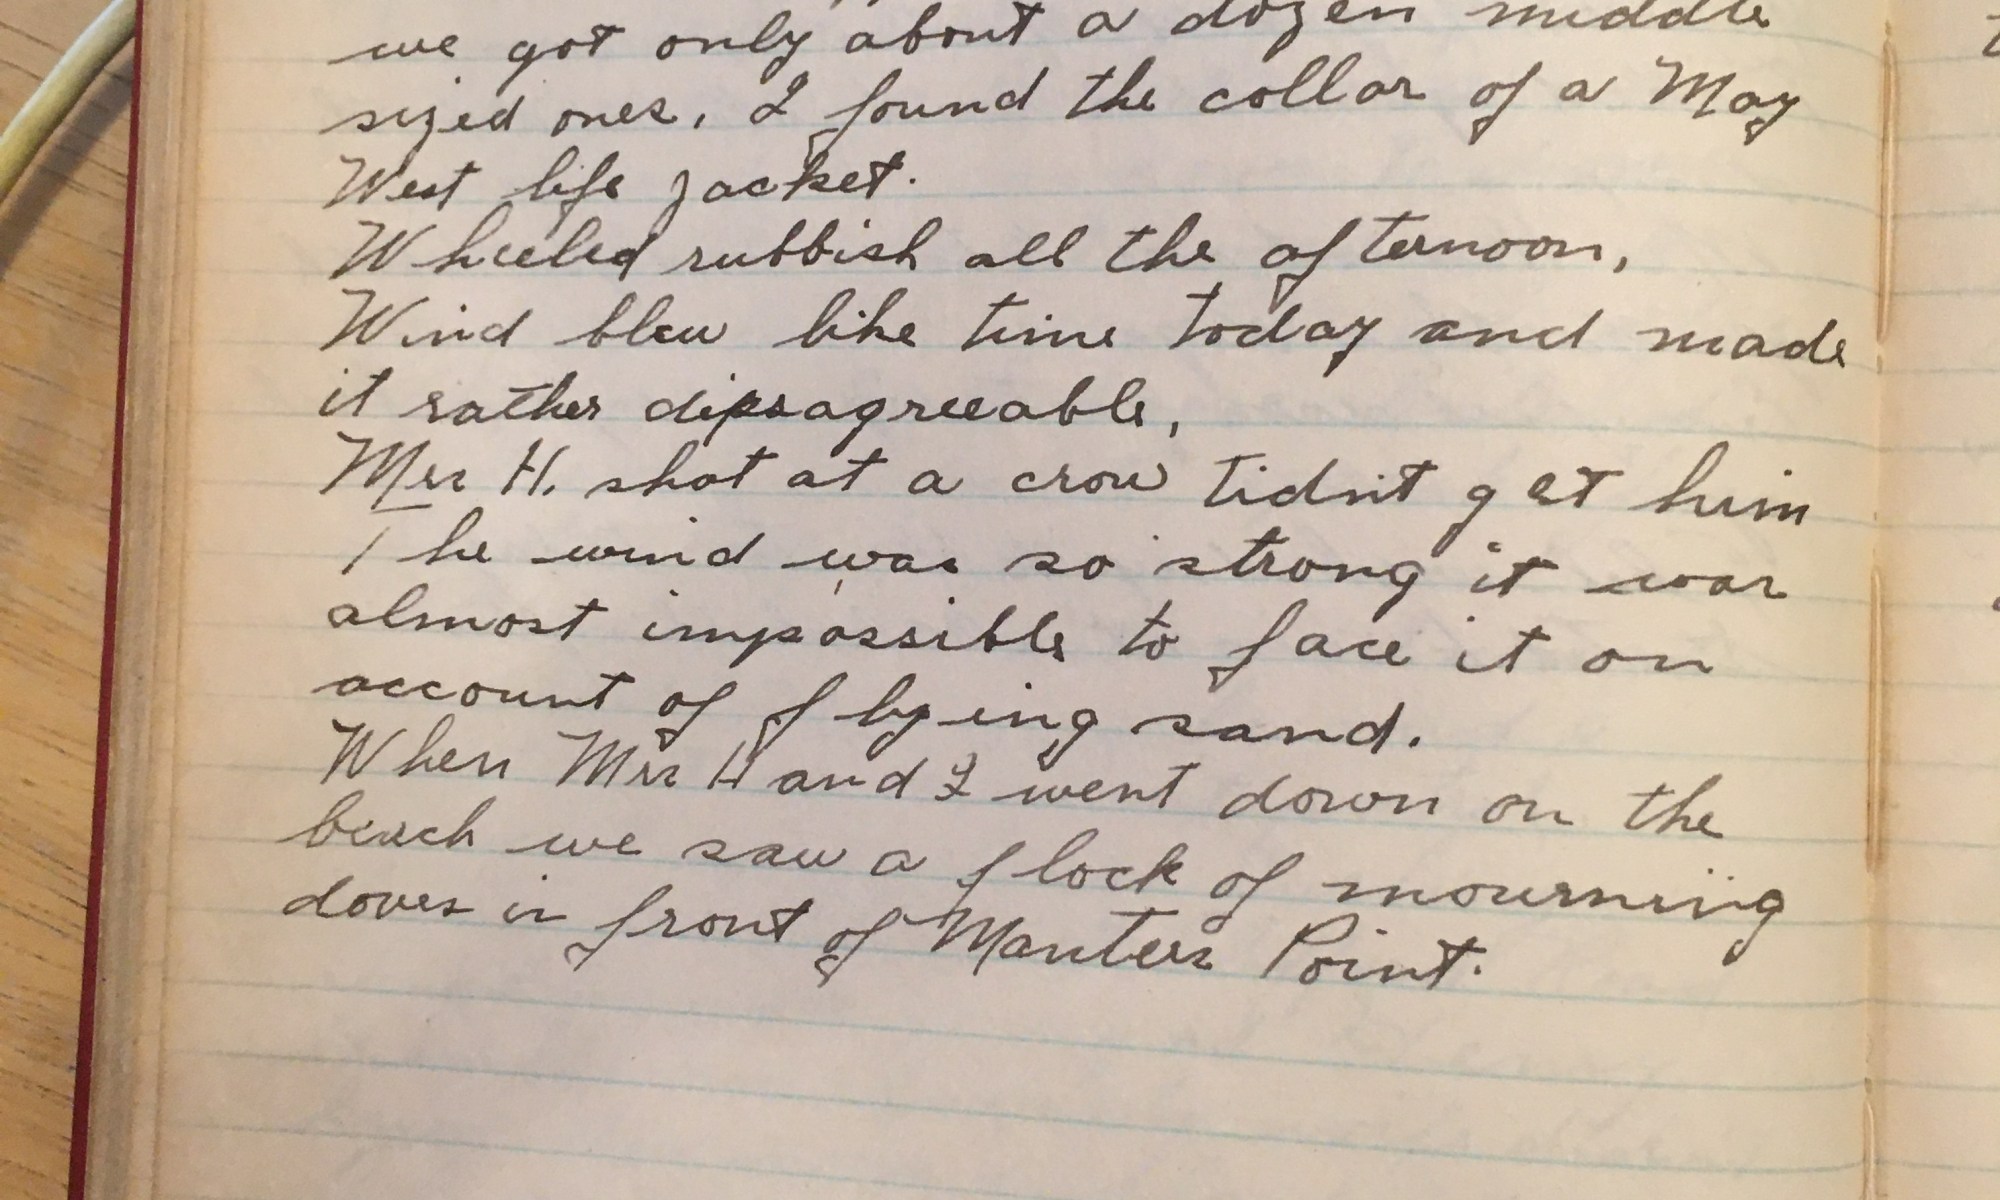 we got only about a dozen middle
sized ones, I found the collar of a May
West life jacket.
Wheeled rubbish all the afternoon,
Wind blew like time today and made
it rather dipsagreeable,
Mrs H. shot at a crow tidn't get him
The wind was so strong it was
almost impossible to face it on
account of flying sand.
When Mrs H and I went down on the
beach we saw a flock of mourning
doves in front of Manters Point.